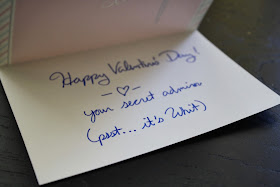 Happy Valentine's Day!
- ♡ -
your secret admirer
(psst... it's Whit)